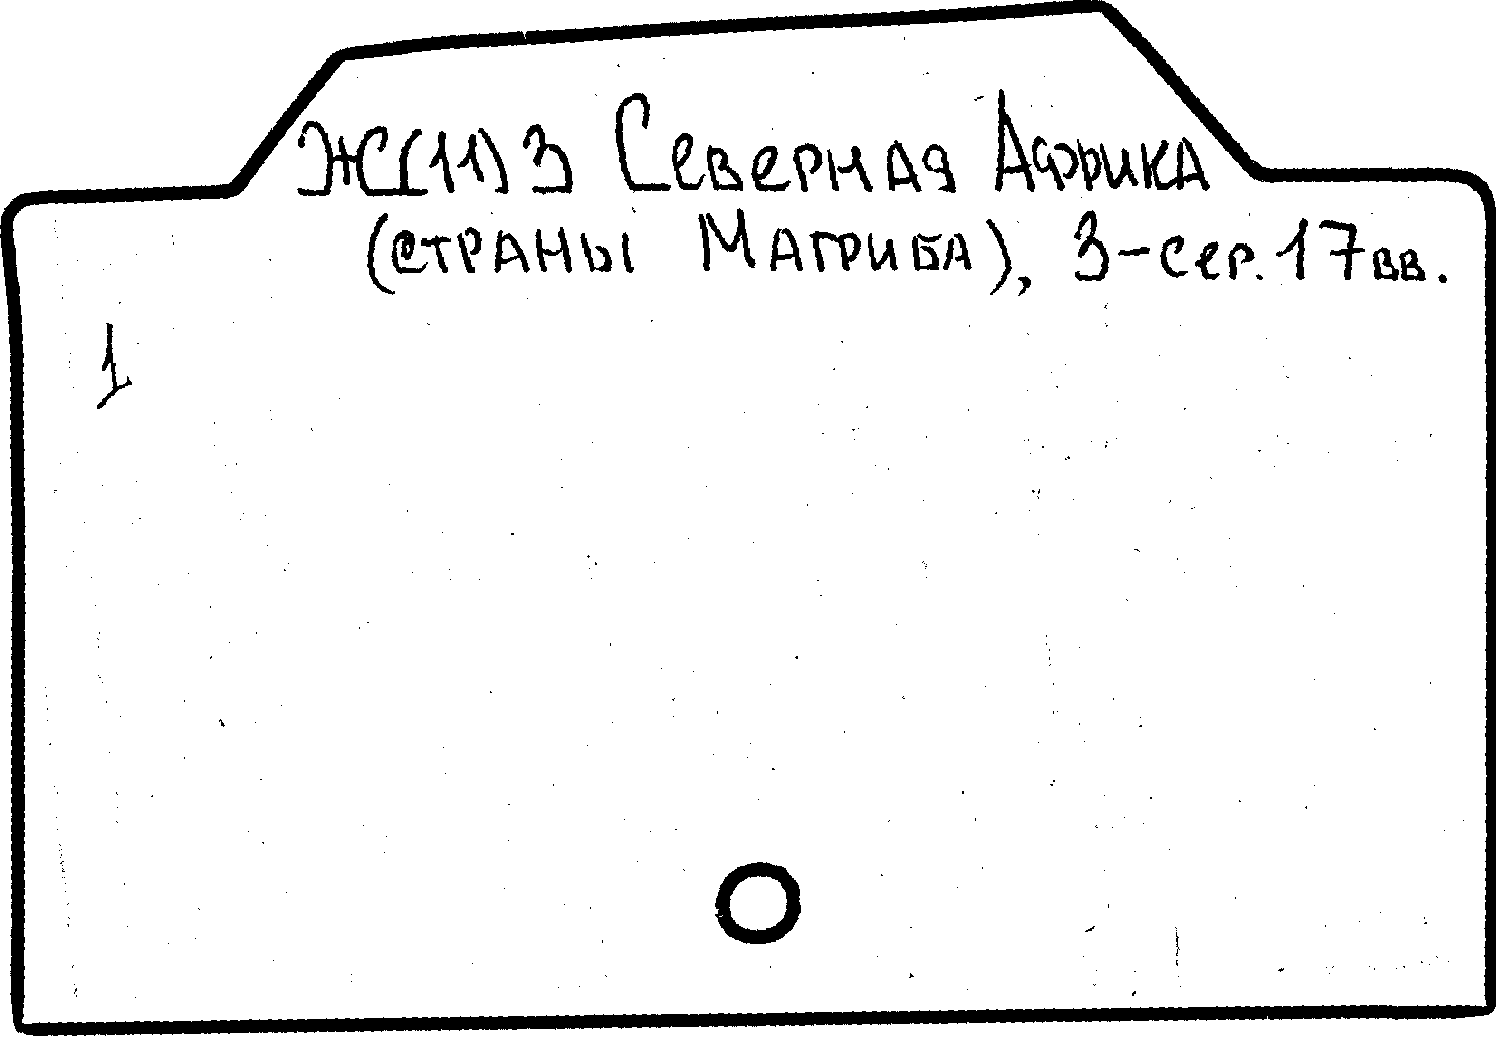 Ж(11)3 Северная Африка
(страны Магриба), 3-сер. 17 вв.
1